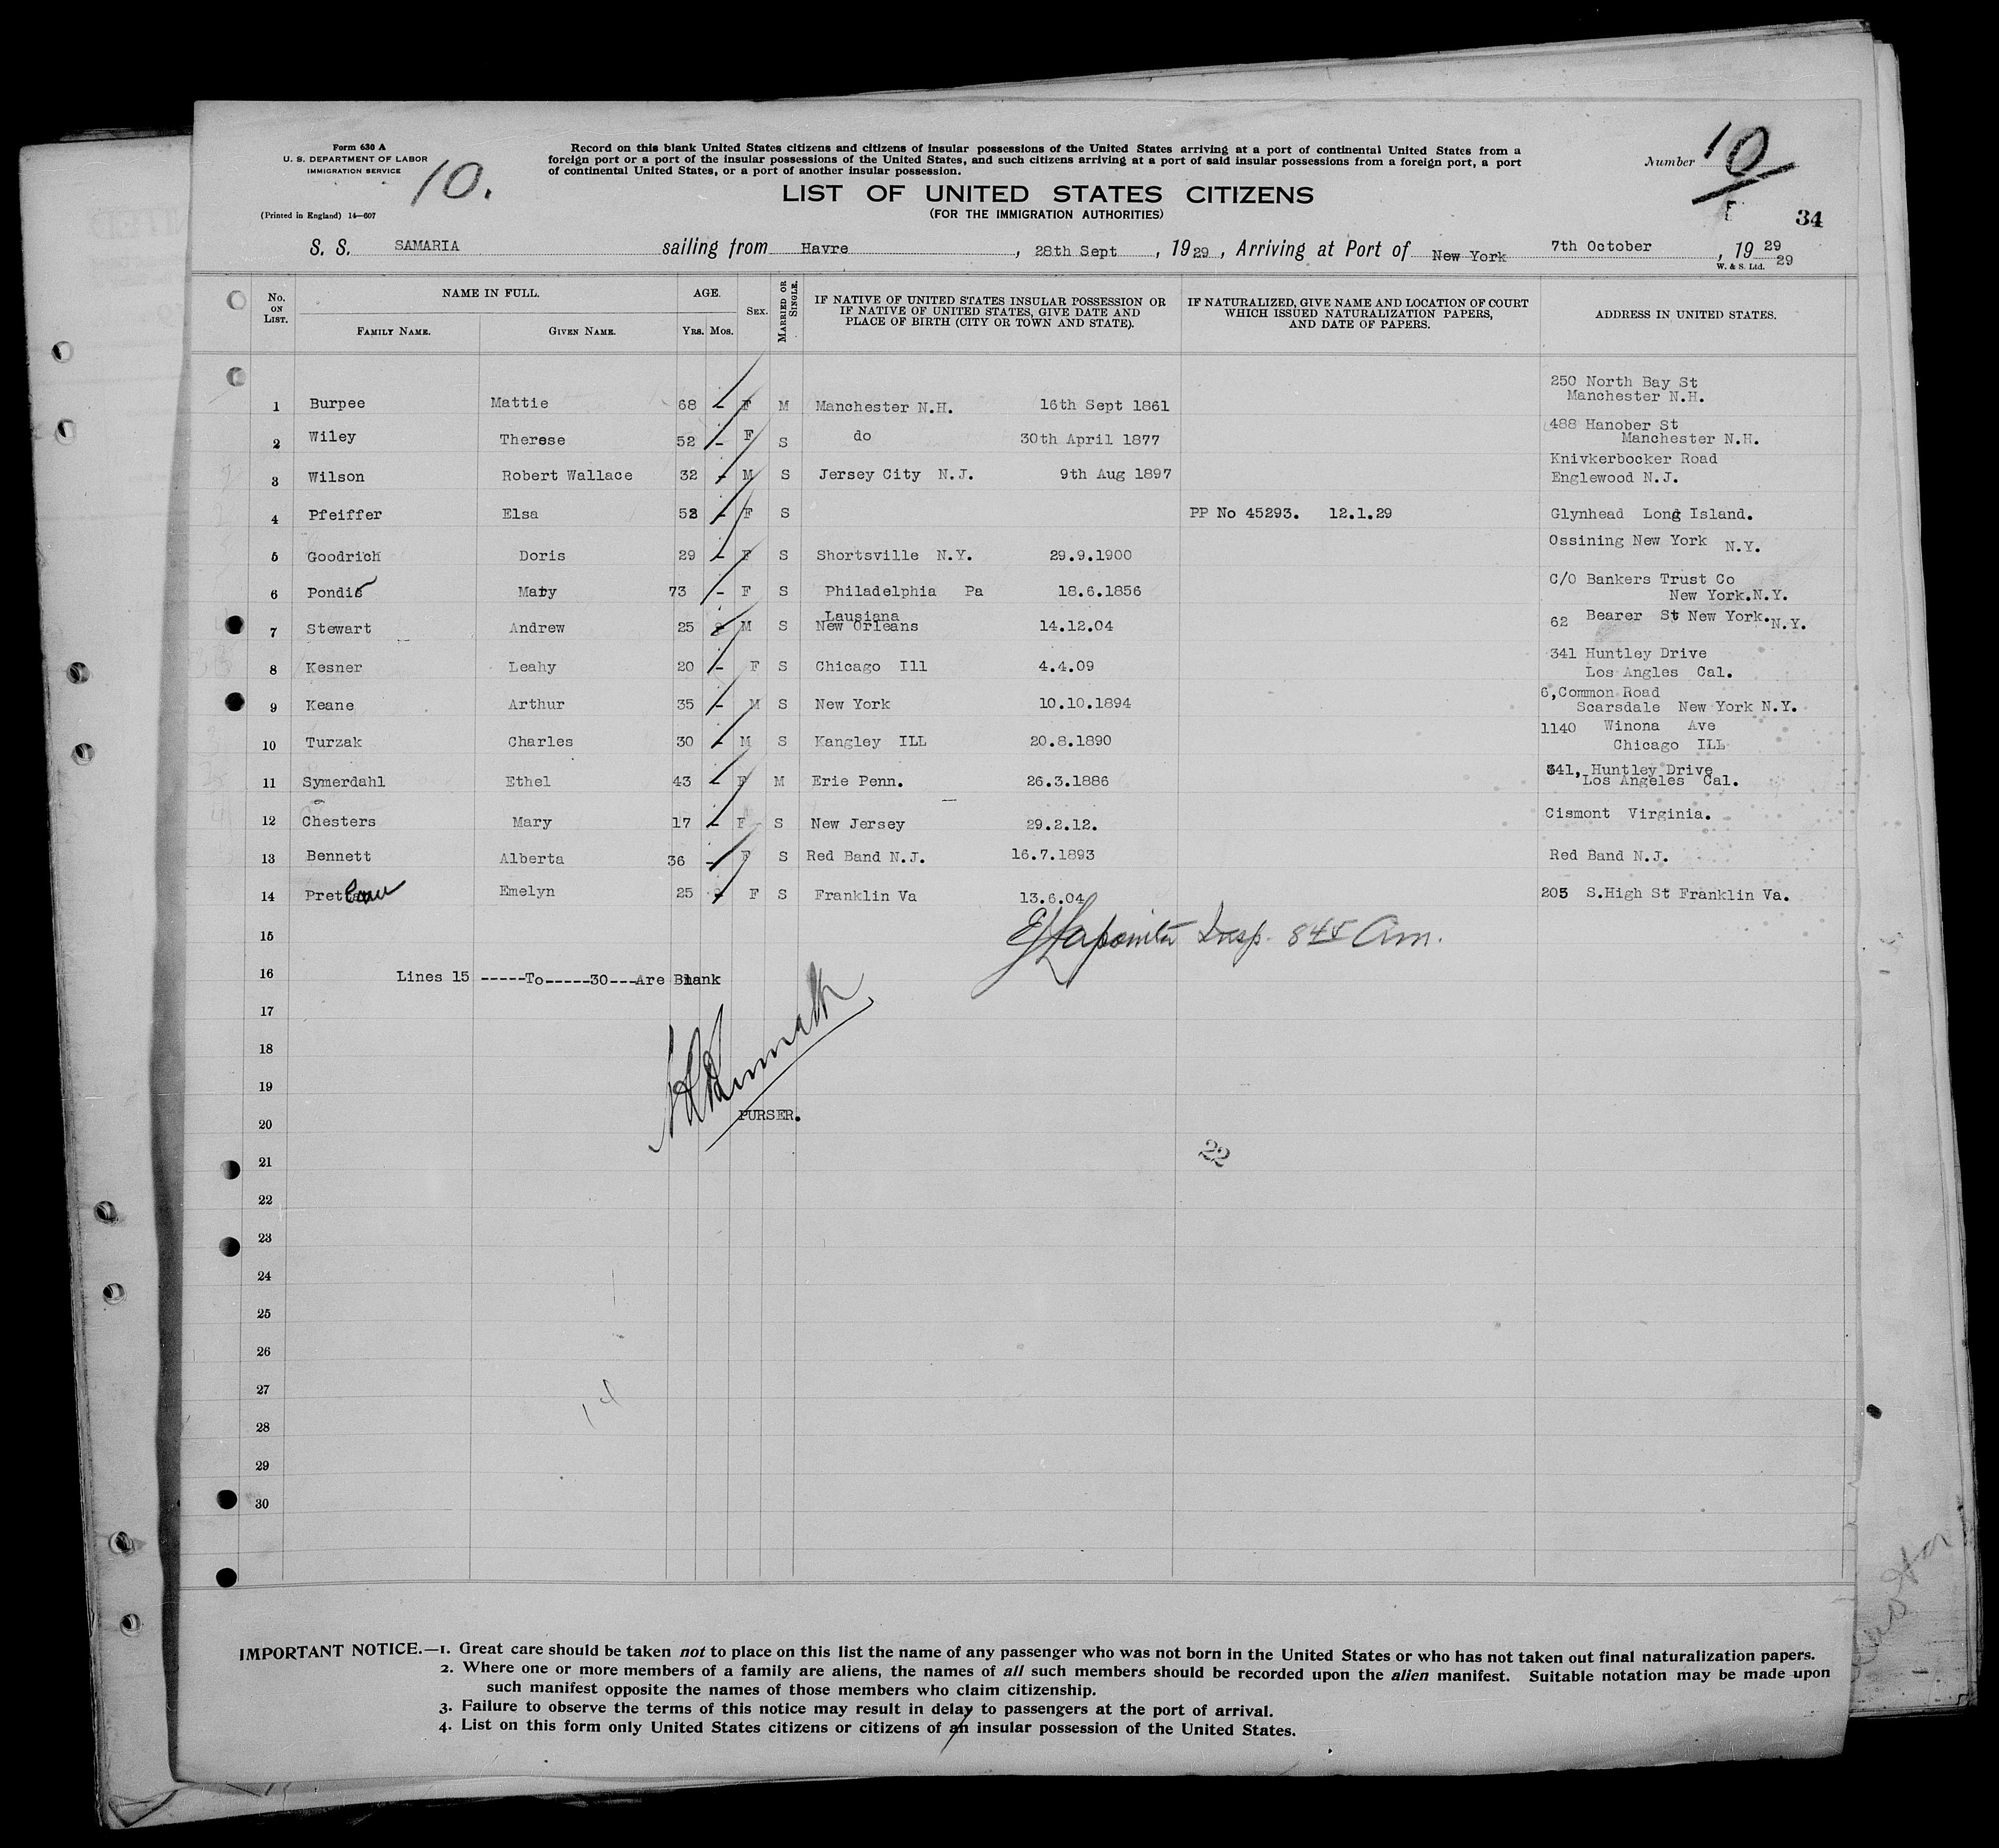 Form 630 A
U. S. DEPARTMENT OF LABOR
IMMIGRATION SERVICE
10.
(Printed in England) 14—607
Record on this blank United States citizens and citizens of insular possessions of the United States arriving at a port of continental United States from a
foreign port or a port of the insular possessions of the United States, and such citizens arriving at a port of said insular possessions from a foreign port, a port
of continental United States, or a port of another insular possession.
Number 10
LIST OF UNITED STATES CITIZENS
(FOR THE IMMIGRATION AUTHORITIES)
34
S. S. SAMARIA sailing from Havre, 28th Sept, 1929, Arriving at Port of New York 7th October, 19 29
29
W. & S. Ltd.
No. ON LIST. NAME IN FULL. FAMILY NAME. GIVEN NAME. AGE. Yrs. Mos. SEX. MARRIED OR SINGLE. IF NATIVE OF UNITED STATES INSULAR POSSESSION OR IF NATIVE OF UNITED STATES, GIVE DATE AND PLACE OF BIRTH (CITY OR TOWN AND STATE). IF NATURALIZED, GIVE NAME AND LOCATION OF COURT WHICH ISSUED NATURALIZATION PAPERS, AND DATE OF PAPERS. ADDRESS IN UNITED STATES.
1 Burpee Mattie 68 - F M Manchester N.H. 16th Sept 1861 250 North Bay St Manchester N.H.
2 Wiley Therese 52 - F S do 30th April 1877 488 Hanober St Manchester N.H.
3 Wilson Robert Wallace 32 - M S Jersey City N.J. 9th Aug 1897 Knivkerbocker Road Englewood N.J.
4 Pfeiffer Elsa 52 - F S PP No 45293. 12.1.29 Glynhead Long Island.
5 Goodrich Doris 29 - F S Shortsville N.Y. 29.9.1900 Ossining New York N.Y.
6 Pondis Mary 73 - F S Philadelphia Pa 18.6.1856 C/O Bankers Trust Co New York.N.Y.
7 Stewart Andrew 25 M S Lausiana New Orleans 14.12.04 62 Bearer St New York. N.Y.
8 Kesner Leahy 20 - F S Chicago Ill 4.4.09 341 Huntley Drive Los Angles Cal.
9 Keane Arthur 35 - M S New York 10.10.1894 6,Common Road Scarsdale New York N.Y.
10 Turzak Charles 30 - M S Kangley ILL 20.8.1890 1140 Winona Ave Chicago ILL
11 Symerdahl Ethel 43 - F M Erie Penn. 26.3.1886 341, Huntley Drive Los Angeles Cal.
12 Chesters Mary 17 - F S New Jersey 29.2.12. Cismont Virginia.
13 Bennett Alberta 36 - F S Red Band N.J. 16.7.1893 Red Band N.J.
14 Emelyn 25 F S Franklin Va 13.6.04 205 S.High St Franklin Va.
15
Insp. 845 Am.
16 Lines 15 -----To-----30---Are Blank
17
18
19
PURSER.
20
22
21
22
23
24
25
26
27
14
28
29
30
IMPORTANT NOTICE.—1. Great care should be taken not to place on this list the name of any passenger who was not born in the United States or who has not taken out final naturalization papers.
2. Where one or more members of a family are aliens, the names of all such members should be recorded upon the alien manifest. Suitable notation may be made upon
such manifest opposite the names of those members who claim citizenship.
3. Failure to observe the terms of this notice may result in delay to passengers at the port of arrival.
4. List on this form only United States citizens or citizens of an insular possession of the United States.